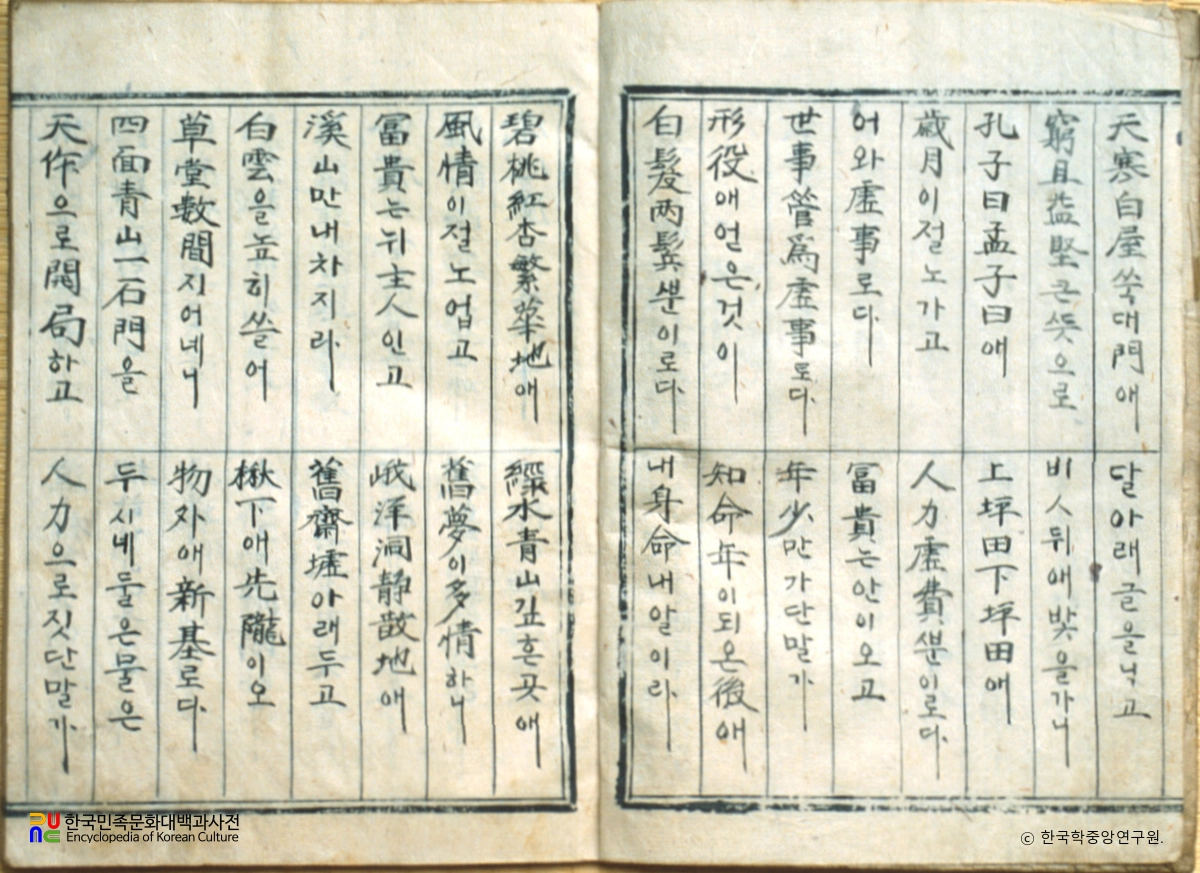 天寒白屋쑥대門애 달아래글을닑고
窮且益堅근뜻으로 비人뒤애밧을가니
孔子曰孟子曰애 上坪田下坪田애
歲月이절노가고 人力虛費분이로다
어와虛事로다 富貴는안이오고
世事營爲虛事로다 年少만가단말가
形役애얻은것이 知命年이되온後애
白髮兩鬂분이로다 내身命내알이라
碧桃紅杏繁華地애 綠水青山깁흔곳애
風情이절노업고 舊夢이多情하니
冨貴는뉘主人인고 峨洋洞静散地애
溪山만내차지라 舊齋墟아래두고
白雲을높히쓸어 楸下애先隴이오
草堂數間지어네니 物外애新基로다
四面青山一石門을 두시네둘은물은
天作으로開局하고 人力으로짓단말가
한국민족문화대백과사전
Encyclopedia of Korean Culture
ⓒ 한국학중앙연구원.